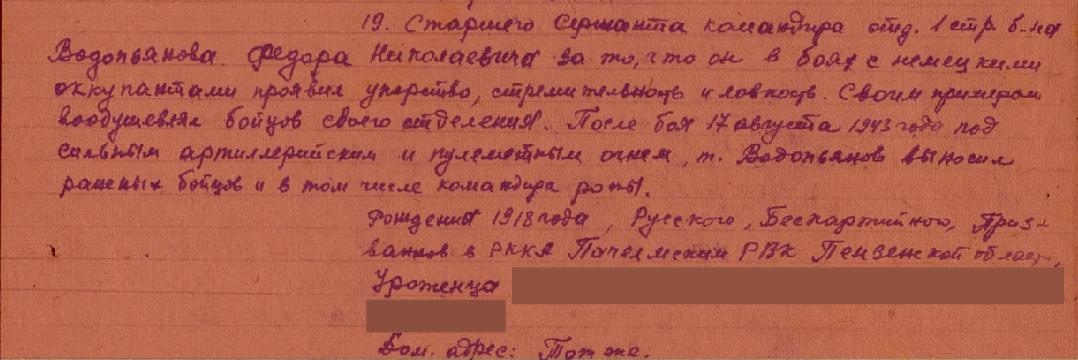 19. Старшего Сержанта командира отд. 1 стр. б-на
Водопьянова Федора Николаевича за то, что он в боях с немецкими
оккупантами проявил упорство, стремительность и ловкость. Своим примером
воодушевлял бойцов своего отделения. После боя 17 августа 1943 года под
сильным артиллерийским и пулеметным огнем, т. Водопьянов выносил
раненых бойцов и в том числе командира роты.
Рождения 1918 года, Русского, Беспартийного, Приз-
ванного в РККА Пачелмским РВК Пензенской област,
Уроженца
Дом. адрес: Тот же.